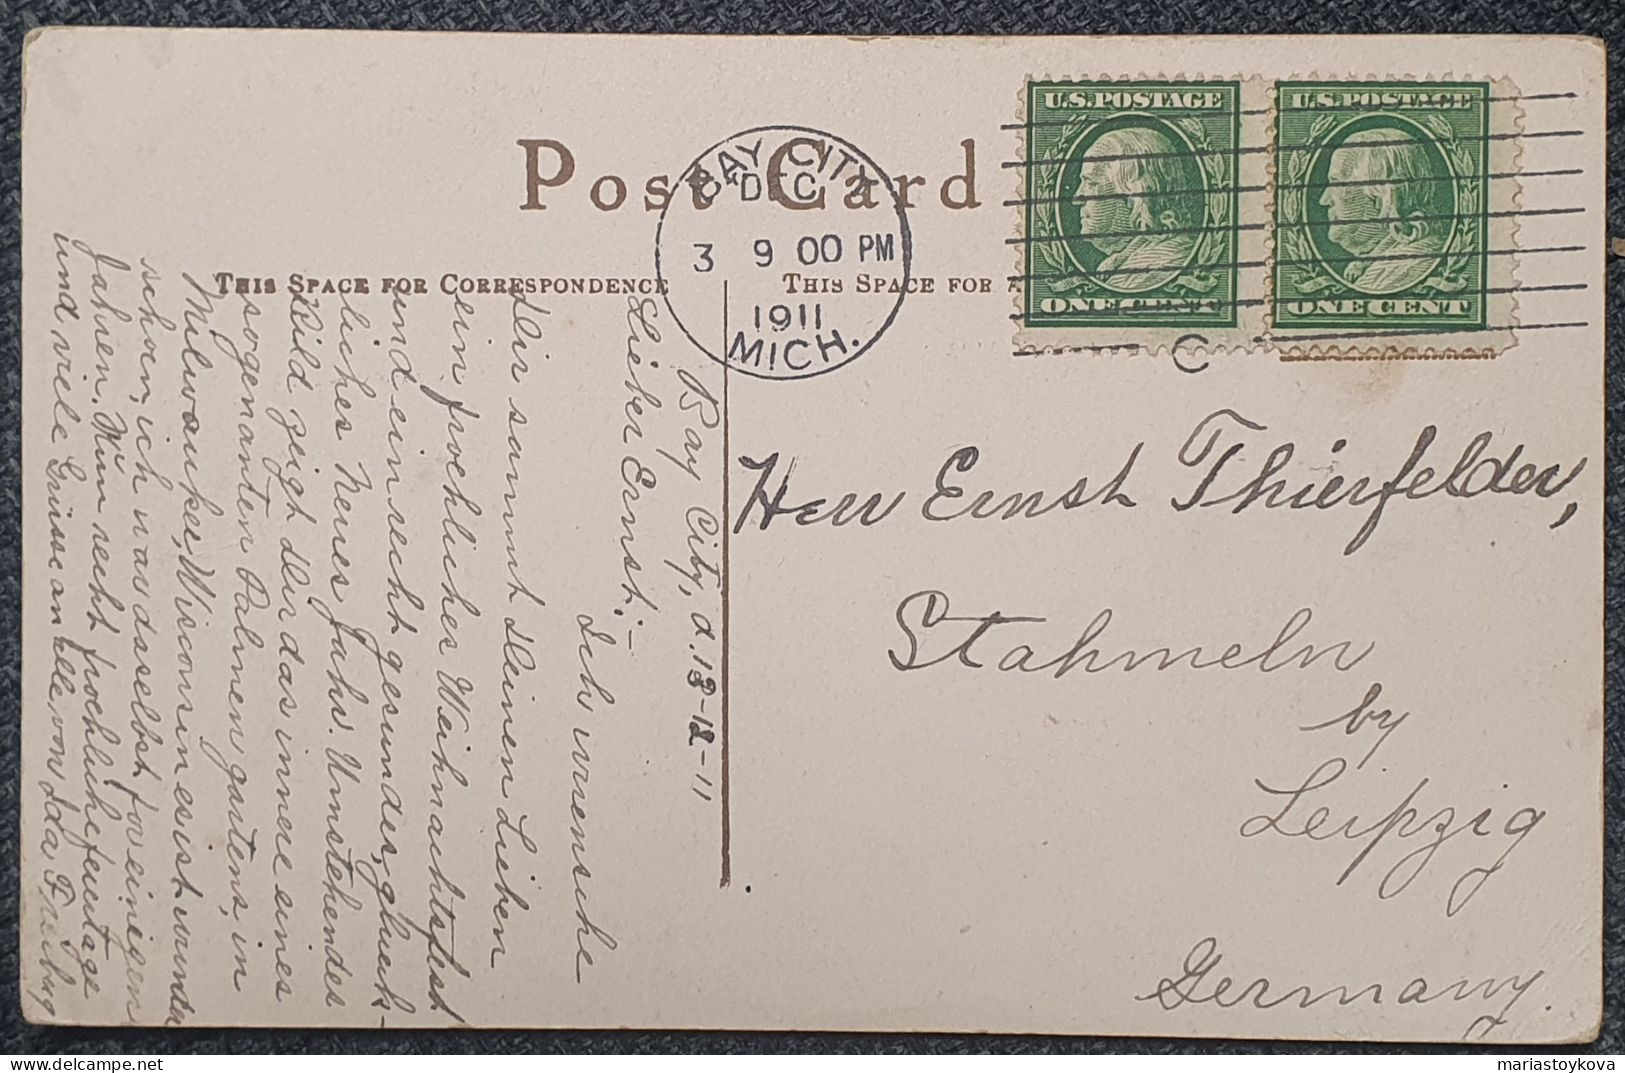 Post Card
BAY CITY
DEC
3 9 00 PM
1911
MICH.
U.S. POSTAGE
ONE CENT
U.S. POSTAGE
ONE CENT
C
THIS SPACE FOR CORRESPONDENCE
THIS SPACE FOR
Bay City, d. 13-12-11
Lieber Ernst:-
Ich wuensche
dir sammt deinen Lieben
ein froehliches Weihnachtsfest
und ein recht gesundes, glueck-
liches Neues Jahr. Umstehendes
Bild zeigt dir das innere eines
sogenanten Palmengartens, in
Milwaukee, Wisconsin es ist wunder
schoen, ich war daselbst for einigen
Jahren. Nun recht froehliche feiertage
und viele Grüsse an alle von Ida Freibug
Herr Ernst Thierfelder,
Stahmeln
by
Leipzig
Germany.
mariastoykova